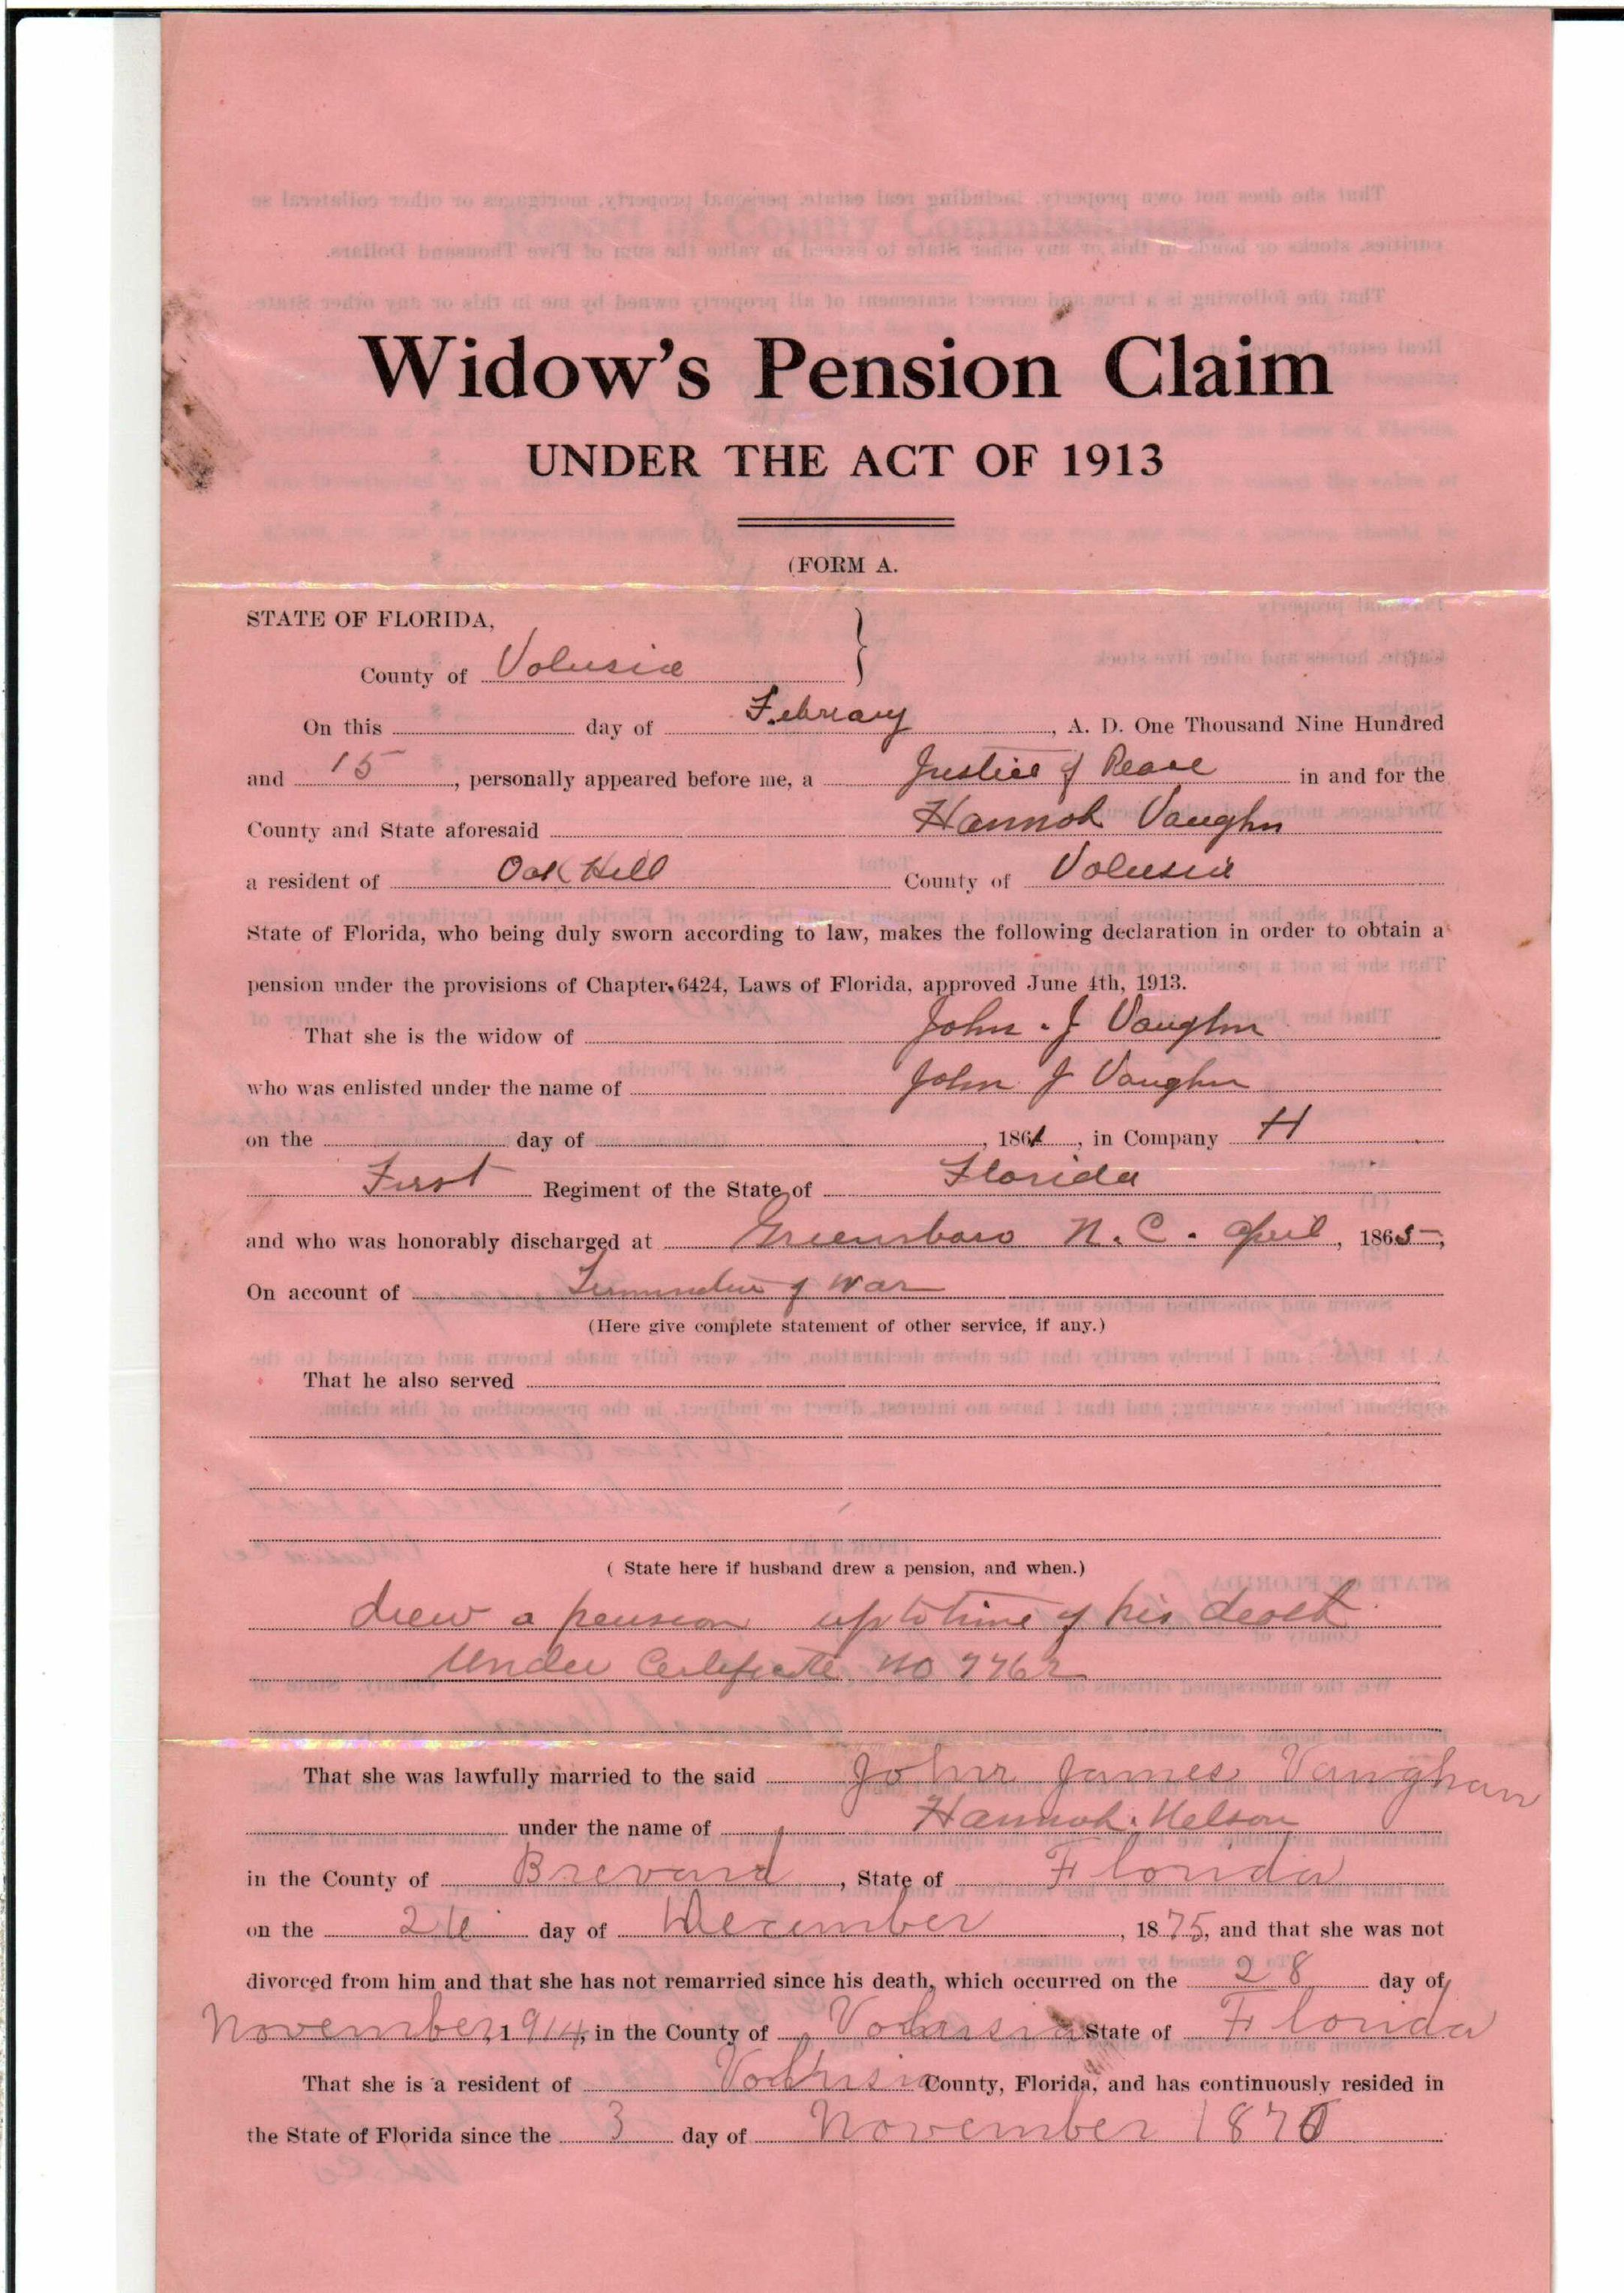 Widow's Pension Claim
UNDER THE ACT OF 1913
(FORM A.
STATE OF FLORIDA,
County of Volusia
On this day of February, A. D. One Thousand Nine Hundred
and 15, personally appeared before me, a Justice of Peace in and for the
County and State aforesaid Hannah Vaughn
a resident of Oak Hill County of Volusia
State of Florida, who being duly sworn according to law, makes the following declaration in order to obtain a
pension under the provisions of Chapter 6424, Laws of Florida, approved June 4th, 1913.
That she is the widow of John . J Vaughn
who was enlisted under the name of John J Vaughn
on the day of , 1861, in Company H
First Regiment of the State of Florida
and who was honorably discharged at Greensboro N. C. April, 1865,
On account of of War
(Here give complete statement of other service, if any.)
That he also served
( State here if husband drew a pension, and when.)
drew a pension up to time of his death
Under Certificate No 7762
That she was lawfully married to the said John James Vaughan
under the name of Hannah Nelson
in the County of Brevard, State of Florida
on the day of December, 1875, and that she was not
divorced from him and that she has not remarried since his death, which occurred on the 28 day of
November, 1914, in the County of Volusia State of Florida
That she is a resident of Volusia County, Florida, and has continuously resided in
the State of Florida since the 3 day of November